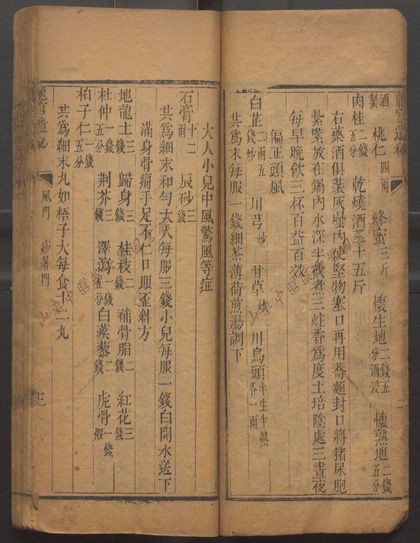 酒製 桃仁四兩 蜂蜜三斤 懷生地二錢五分酒浸 懷熟地二錢五分
肉桂二錢五分 乾燒酒十五斤
右藥酒俱裝灰罈內
紮緊放在鍋內水深半截煮三炷香爲度土培陰處三晝夜
每早晚飲三杯百益百效
偏正頭風
白芷二兩五錢 川芎炒 甘草 川烏頭半生半熟各一兩
共爲細末每服一錢細茶薄荷煎湯調下
大人小兒中風驚風等症
石膏十二兩 辰砂錢
共爲細末和勻大人每服三錢小兒每服一錢白開水送下
滿身骨痛手足不仁口眼歪斜方
地龍土三錢 歸身三錢 桂枝二錢 補骨脂二錢 紅花三錢
杜仲一錢五分 荆芥二錢 澤瀉一錢五分 白蒺藜二錢 虎骨一錢煅
柏子仁一錢五分
共爲細末丸如梧子大每食十二丸
風門